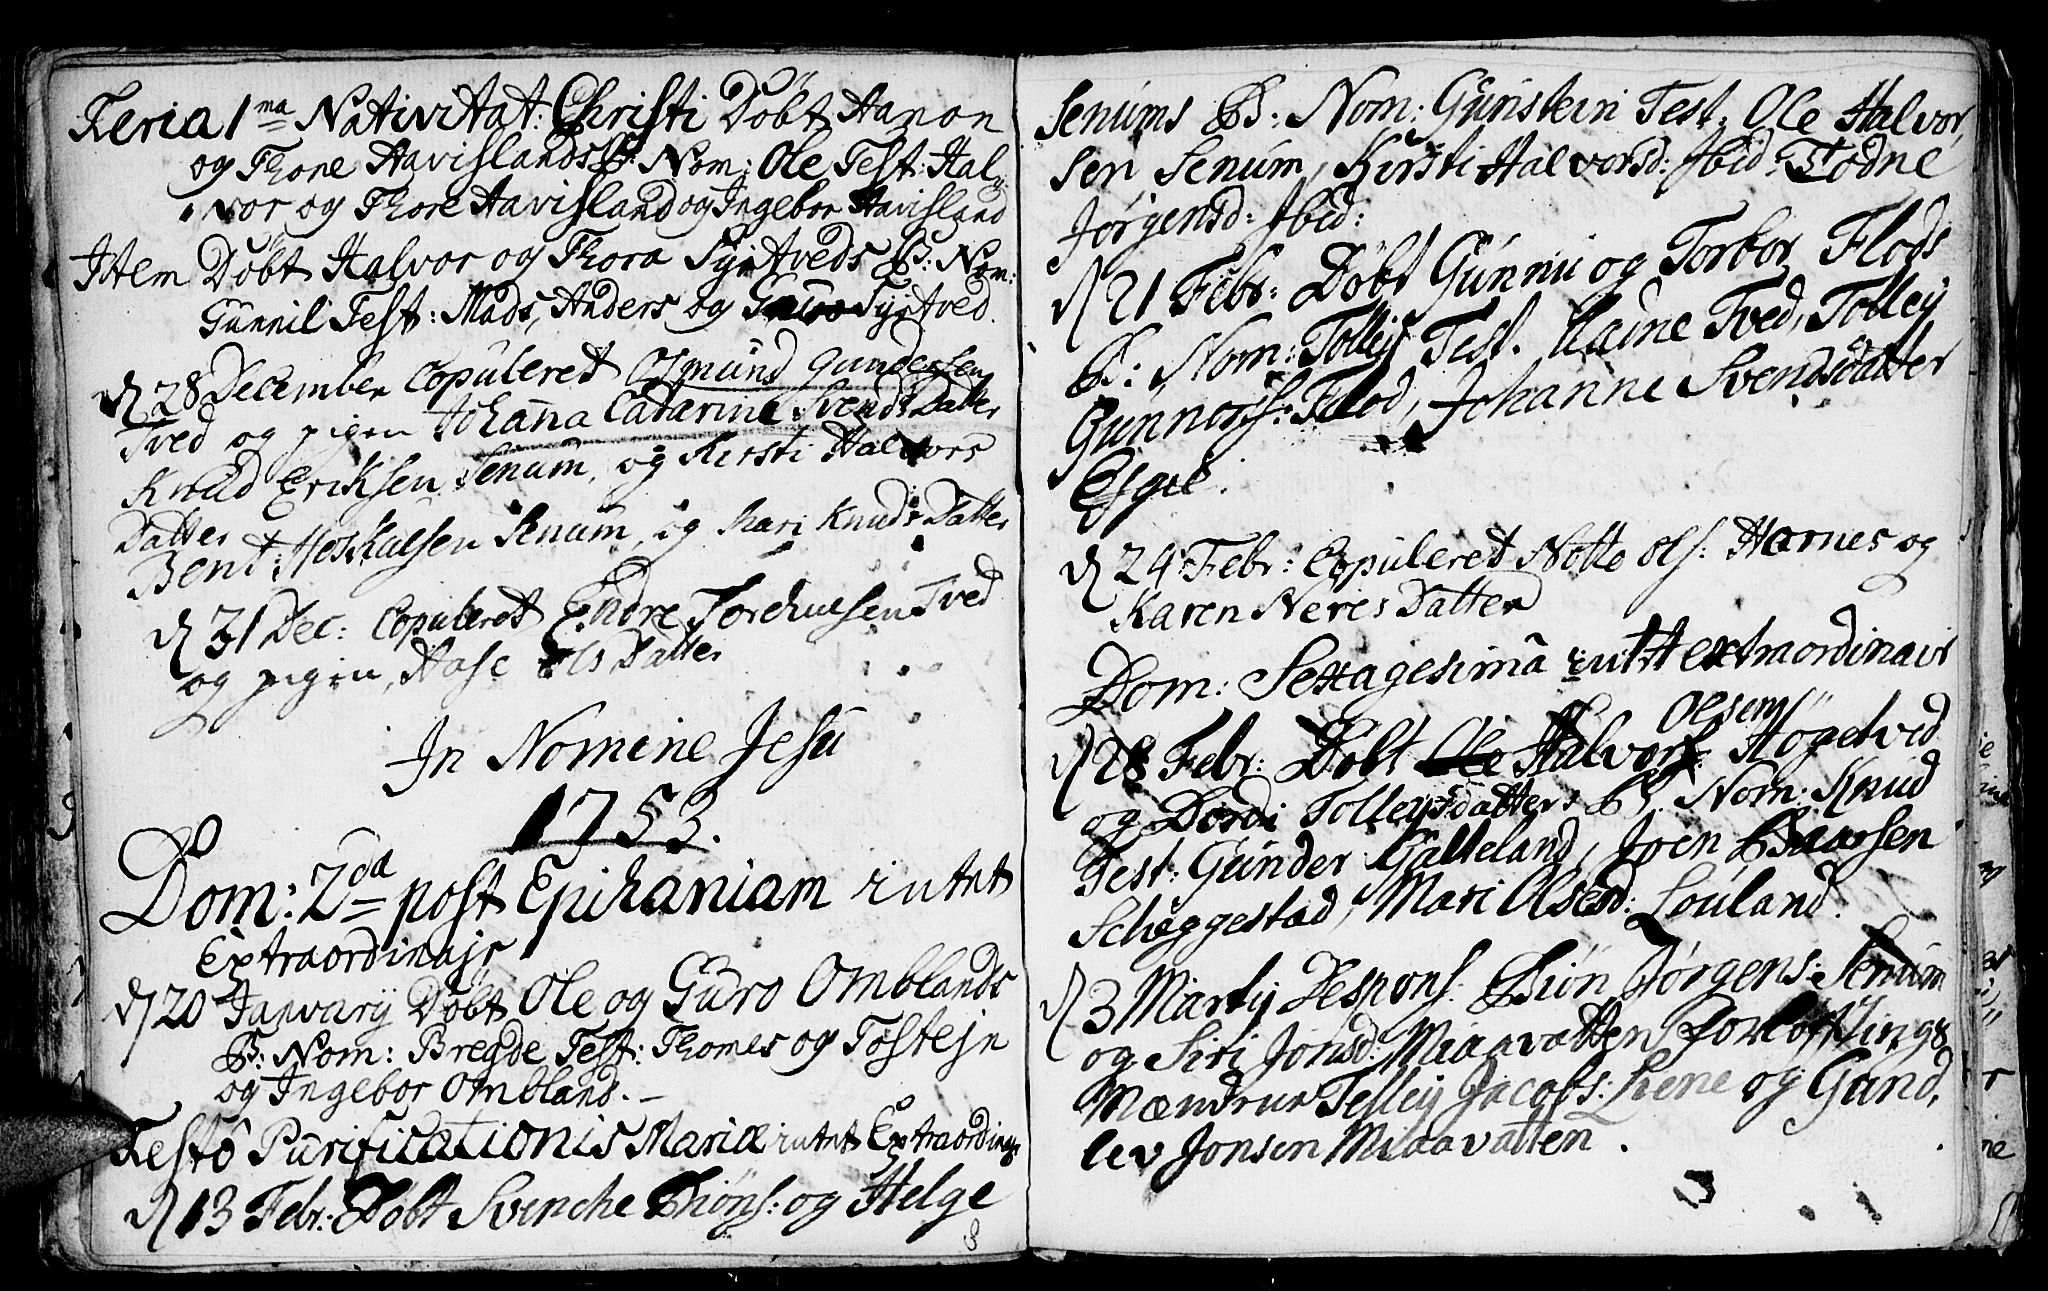 Feria 1ma Nativitat: Christi Döbt Aanon
og Thone Aavislands B: Nom: Ole Test: Hal-
vor og Thore Aavisland og Ingebor Aavisland
Item Döbt Halvor og Thora Syrtveds B: Nom:
Gunnil Test: Mads, Anders og Syrtved.
d 28 December Copuleret Osmund Gundersen
Tved og pigen Johanna Catarina Svends Datter
Knud Eriksen Senum, og Kirsti Halvors
Datter
Bent: Heskalsen Senum, og Mari Knuds Datter
d 31 Dec: Copuleret Endre Torchuesen Tved
og pigen, Aase Ols Datter
In Nomine Jesu
1753.
Dom: 2da post Epihaniam intet
Extraordinajr
d 20 Janvarij Döbt Ole og Guro Omblands
B: Nom: Bregde Test: Thomes og Tostejn
og Ingebor Ombland. –
Festo Purificationis Mariæ intet Extraordinajr
d 13 Febr: Döbt Svenche Biöns: og Helge
8
Senums B: Nom: Gunstein Test: Ole Halvor,
sen Senum, Kirsti Halvorsd: Ibid: Todne
Jörgensd: Ibid:
d 21 Febr: Döbt Gunnu og Torbor Flods
B: Nom: Tollejf Test. Tved, Tollej
Gunnors: Flod, Johanne Svendsdatter
d 24 Febr: Copuleret Notto Ols: Hornes og
Karen Neres Datter
Dom: Sexagesima intet extraordinair
Olsens
d 28 Febr: Döbt Ole Halvors Högetved
og Dordi Tollejsdatters B. Nom: Knud
Test: Gunder Galteland, Joen Baarsen
Scheggestad, Mari Olsesd: Louland.
d 3 Martij Despons: Biön Jörgens: Senum
og Siri Jonsd: Miaavatten Forloftnings
Mændrue Tellej Jacobs: Lene og Gund,
lev Jonsen Miaavatten.